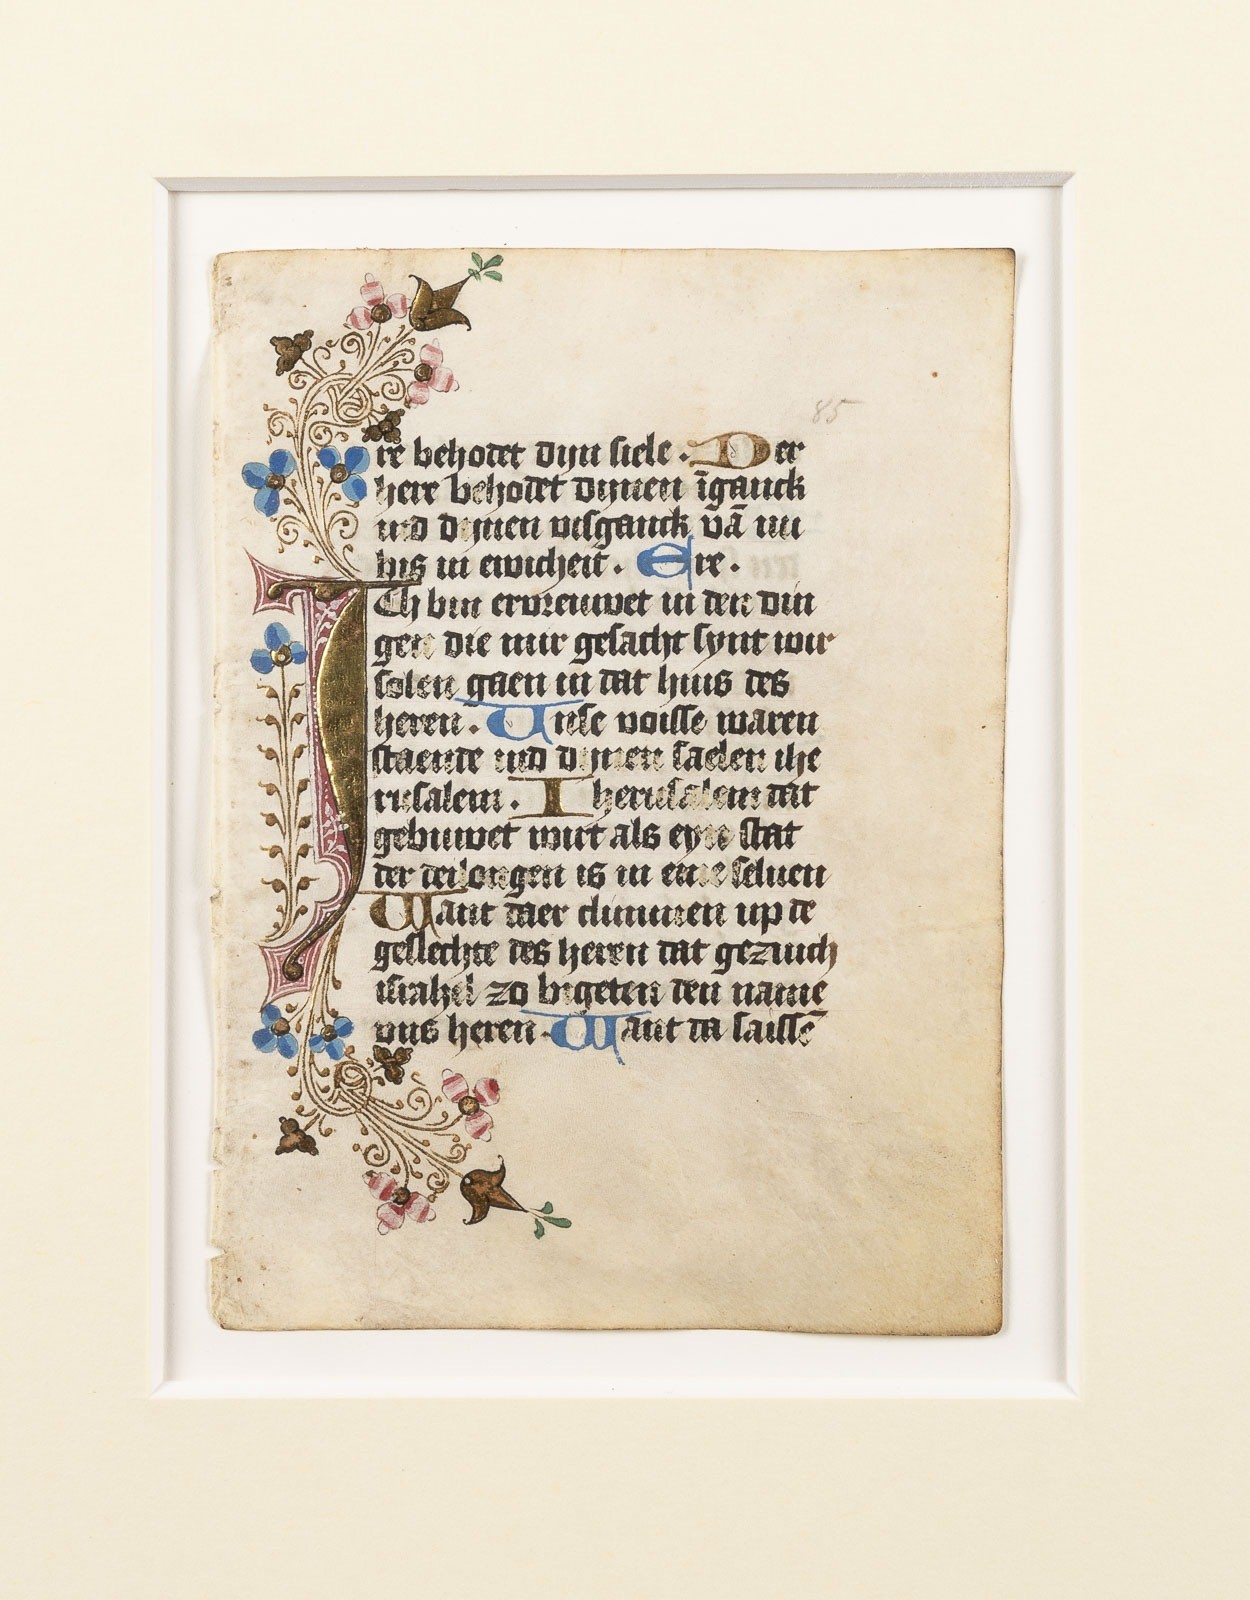 85
re behodet dyn siele. Der
here behodet dynen īganck
und dynen uisganck vā nu
bis in ewicheit. Ere.
Ich bin ervreuwet in den din
gen die mir gesacht synt wir
solen gaen in dat huis des
heren. Unse voisse waren
staende und dynen saelen ihe
rusalem. Iherusalem dat
gebuwet wirt als eyn stat
der deilongen is in eme selven
Want daer clummen up de
geslechte des heren dat gezuich
israhel zo bigeten den name
uns heren. Want da saissē